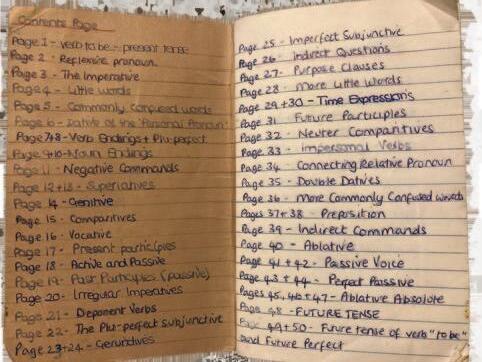 Contents Page
Page 1 - verb to be - present tense
Page 2 - Reflexive pronoun
Page 3 - The Imperative
Page 4 - Little words
Page 5 - Commonly confused words
Page 6 - Dative of the Personal Pronoun
Page 7+8 - Verb Endings + Plu-perfect
Page 9+10 - Noun Endings
Page 11 - Negative Commands
Page 12+13 - Superlatives
Page 14 - Genitive
Page 15 - Comparitives
Page 16 - Vocative
Page 17 - Present participles
Page 18 - Active and Passive
Page 19 - Past Participles (passive)
Page 20 - Irregular Imperatives
Page 21 - Deponent Verbs
Page 22 - The Plu-perfect subjunctive
Page 23+24 - Gerundives
Page 25 - Imperfect Subjunctive
Page 26 - Indirect Questions
Page 27 - Purpose Clauses
Page 28 - More little words
Page 29+30 - Time Expressions
Page 31 Future Participles
Page 32 - Neuter Comparitives
Page 33 - Impersonal Verbs
Page 34 Connecting Relative Pronoun
Page 35 - Double Datives
Page 36 - More Commonly Confused words
Pages 37+38 - Preposition
Page 39 - Indirect Commands
Page 40 - Ablative
Page 41+42 - Passive Voice
Page 43+44 - Perfect Passive
Pages 45, 46+47 - Ablative Absolute
Page 48 - FUTURE TENSE
Page 49+50 - Future tense of verb "to be"
and Future Perfect